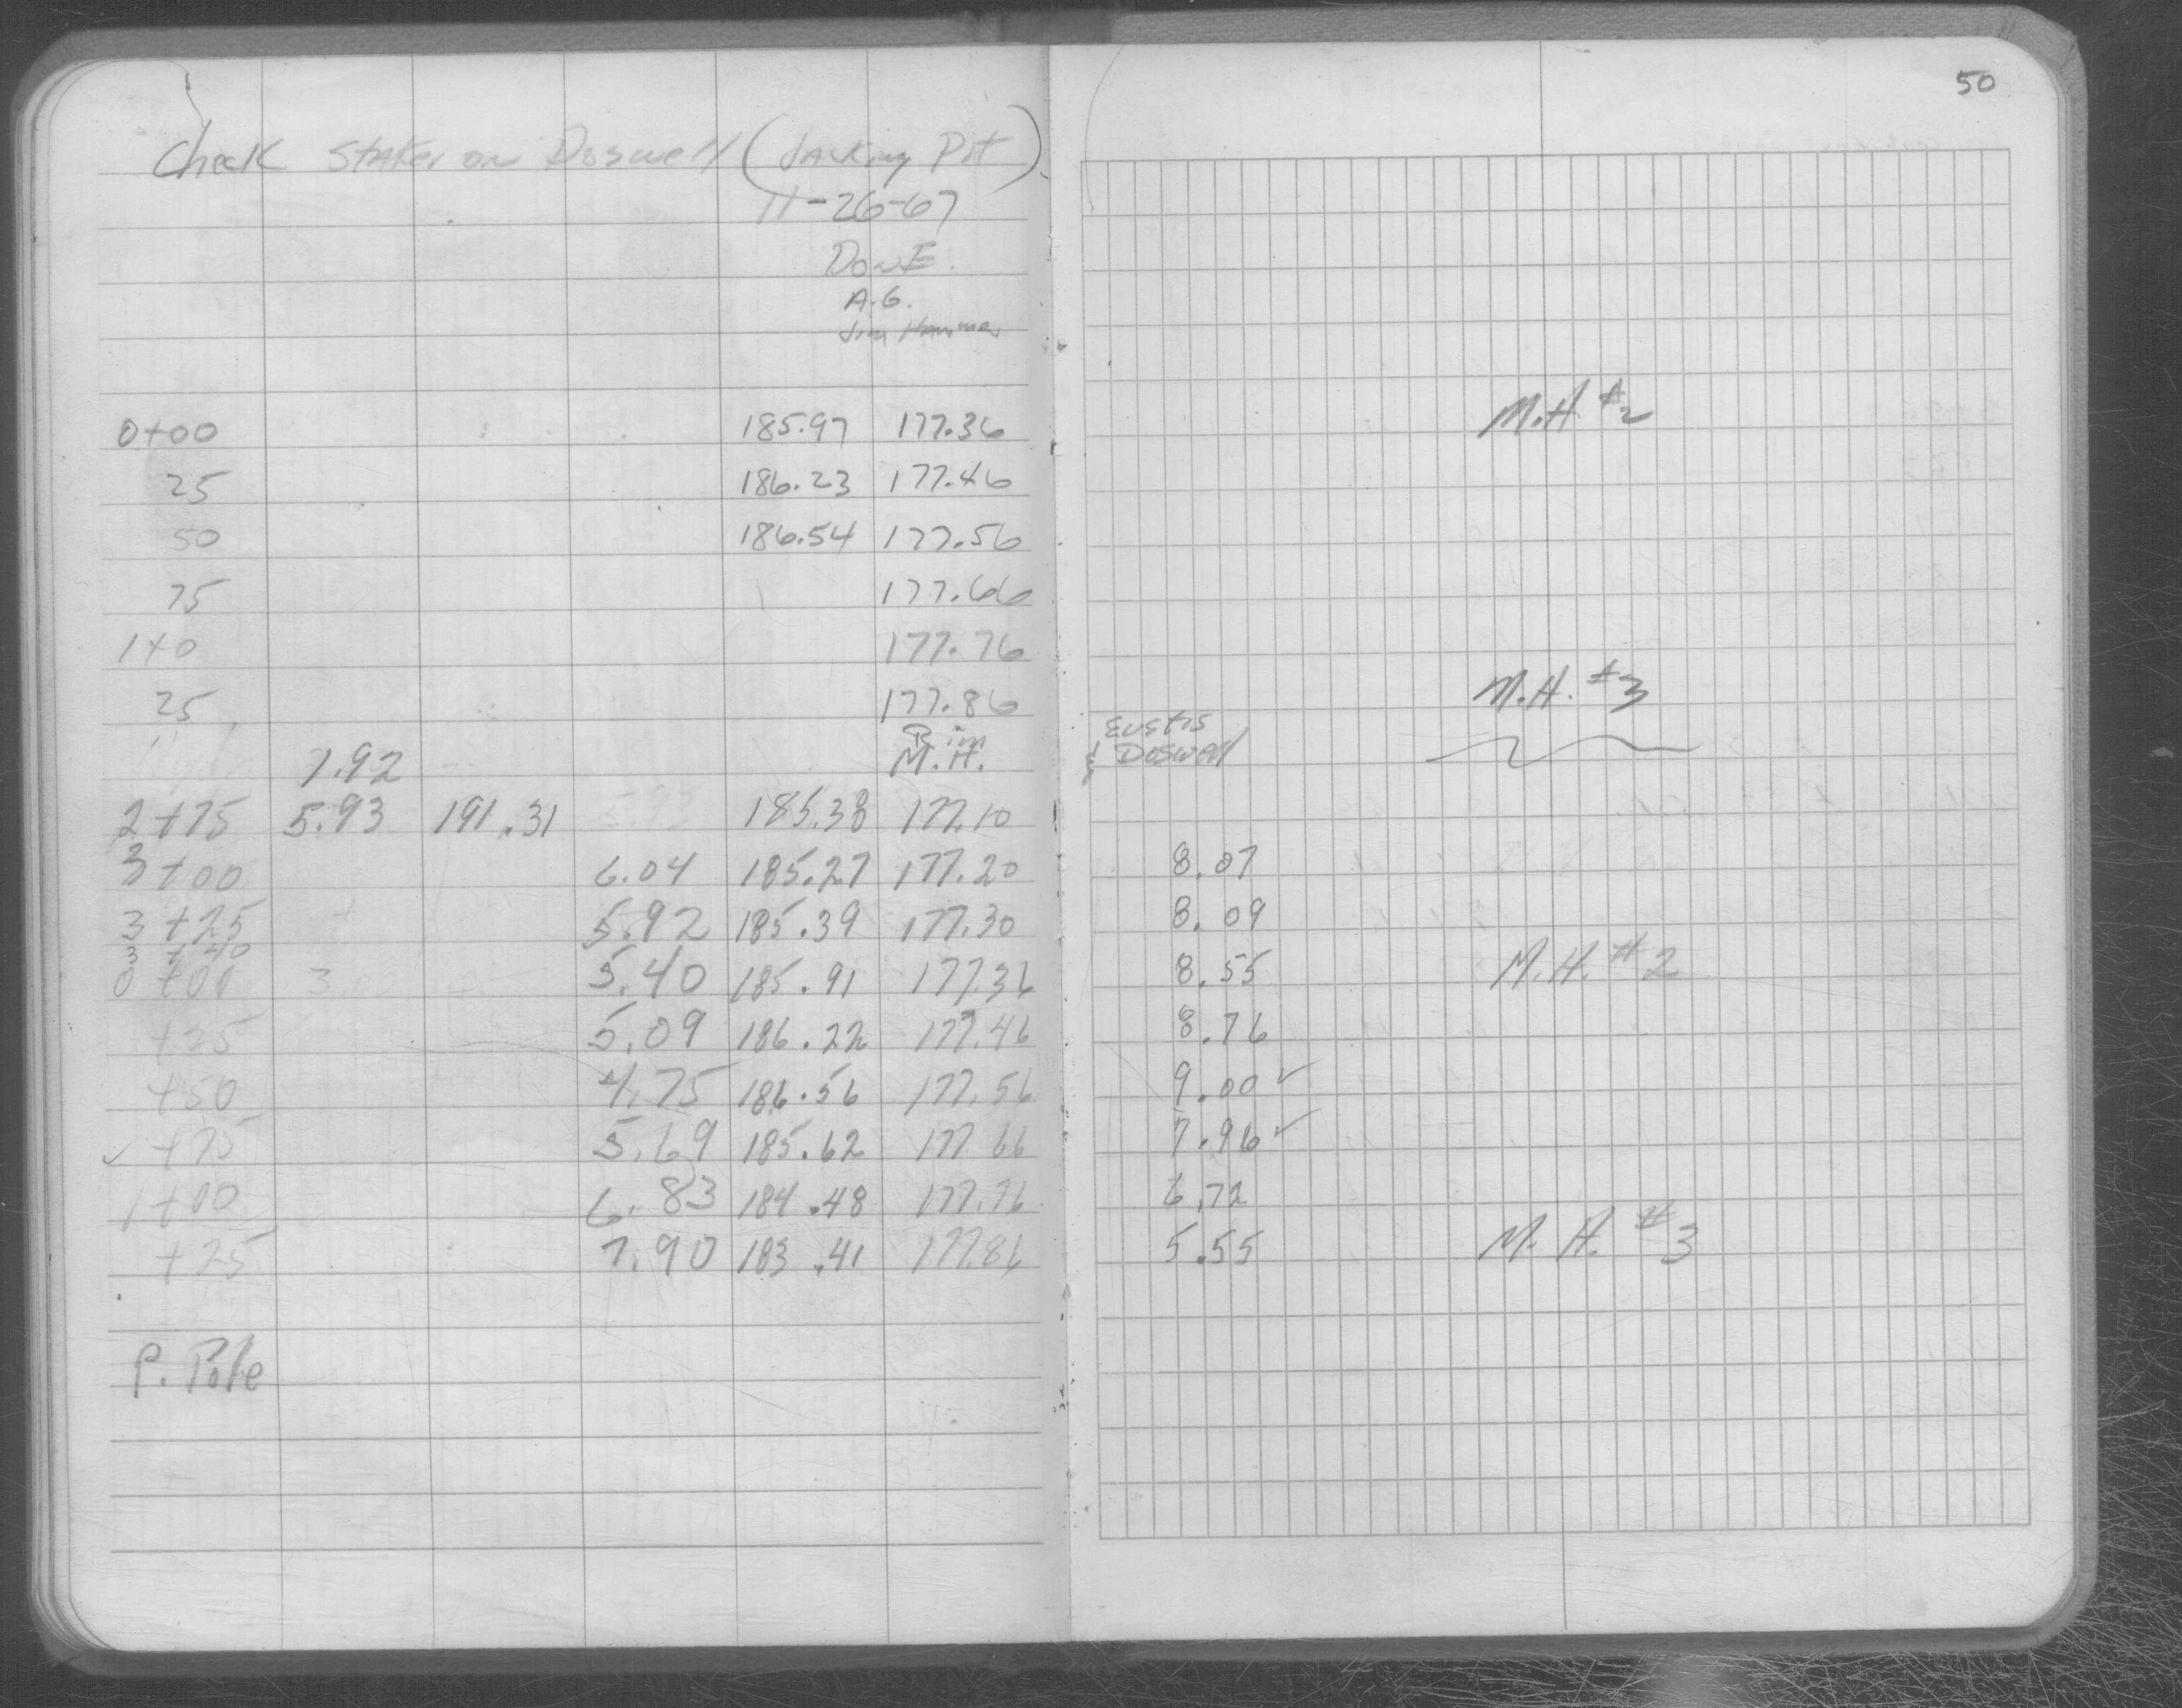 50
Check Stakes on Doswell (Jacking Pit)
11-26-67
Don E.
A.G.
Jim
0+00 185.97 177.36 M.H. #2
25 186.23 177.46
50 186.54 177.56
75 177.66
1+0 177.76
25 177.86 M.H. #3
Rim Eustis
7.92 M.H. & Doswell
2+75 5.93 191.31 5.93 185.38 177.10
3+00 6.04 185.27 177.20 8.07
3+25 5.92 185.39 177.30 8.09
3+40
0+00 5.40 185.91 177.36 8.55 M.H. #2
+25 5.09 186.22 177.46 8.76
+50 4.75 186.56 177.56 9.00 ✓
✓ +75 5.69 185.62 177.66 7.96 ✓
1+00 6.83 184.48 177.76 6.72
+25 7.90 183.41 177.86 5.55 M.H. #3
P. Pole